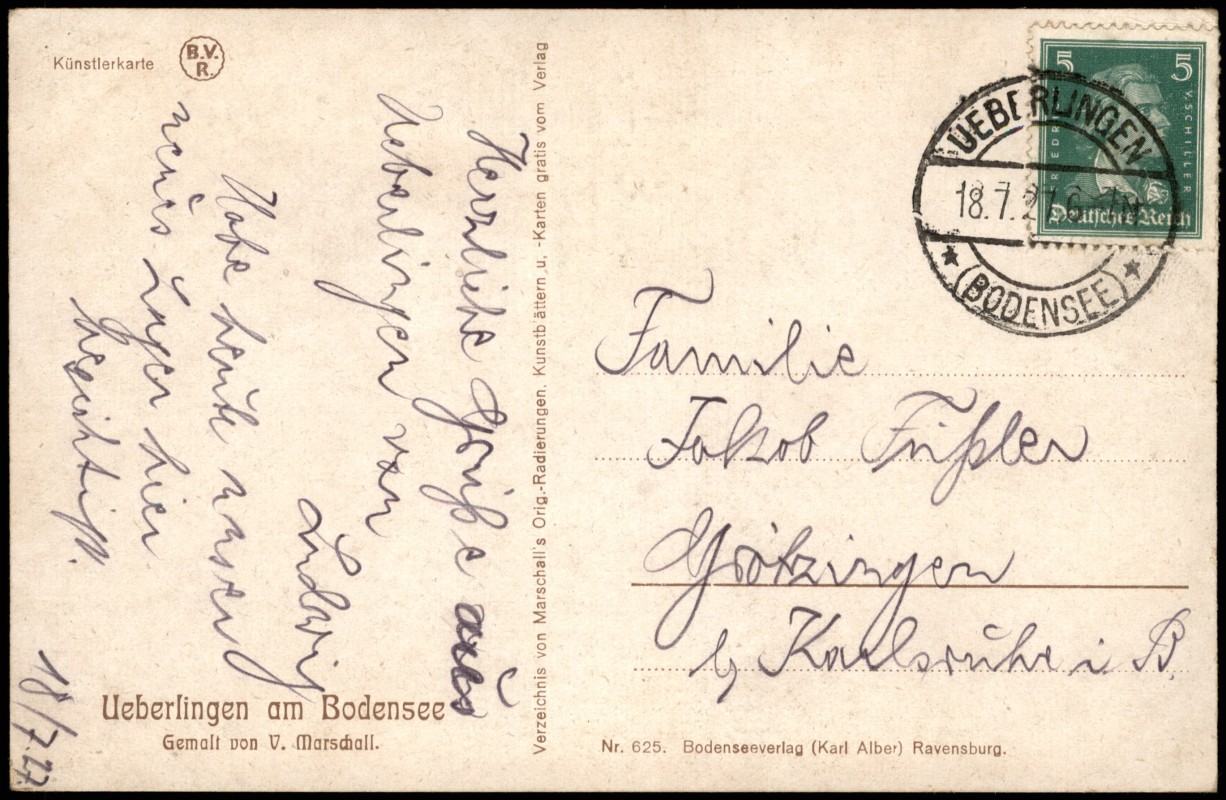 Künstlerkarte
B.V.
R.
Herzliche Grüße aus
Ueberlingen von
Ludwig
Habe heute unser
neues Lager hier
besichtigt.
18/7.27.
Ueberlingen am Bodensee
Gemalt von V. Marschall.
Verzeichnis von Marschall's Orig.-Radierungen, Kunstblättern u. -Karten gratis vom Verlag
5 5
FRIEDR. V. SCHILLER
Deutsches Reich
UEBERLINGEN
18.7.27.6-7N
(BODENSEE)
Familie
Jakob Füßler
Grötzingen
b/ Karlsruhe i B
Nr. 625. Bodenseeverlag (Karl Alber) Ravensburg.